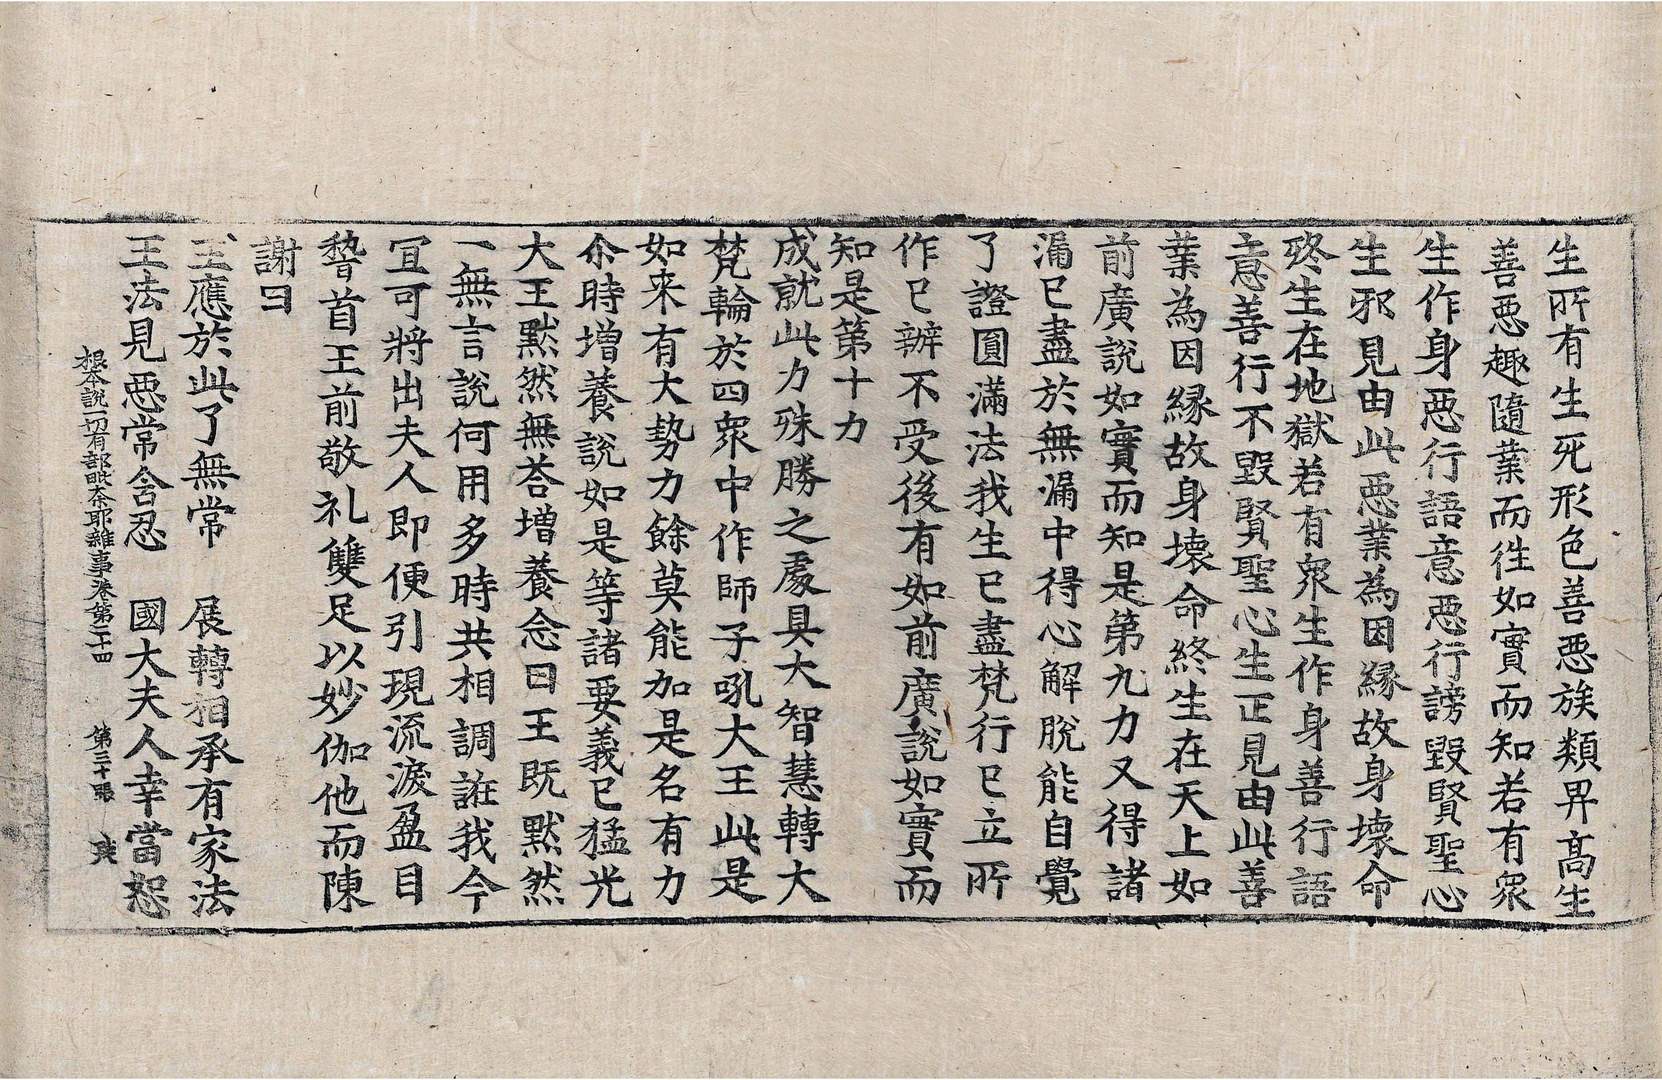 生所有生死形色善惡族類昇高生
善惡趣隨業而徃如實而知若有衆
生作身惡行語意惡行謗毀賢聖心
生邪見由此惡業為因縁故身壞命
終生在地獄若有衆生作身善行語
意善行不毀賢聖心生正見由此善
業為因縁故身壞命終生在天上如
前廣說如實而知是第九力又得諸
漏已盡於無漏中得心解脫能自覺
了證圓滿法我生已盡梵行已立所
作已辦不受後有如前廣說如實而
知是第十力
成就此力殊勝之處具大智慧轉大
梵輪於四衆中作師子吼大王此是
如来有大勢力餘莫能加是名有力
尒時增養說如是等諸要義已猛光
大王默然無荅增養念曰王既默然
一無言說何用多時共相調誑我今
宜可將出夫人即便引現流淚盈目
稽首王前敬礼雙足以妙伽他而陳
謝曰
王應於此了無常　展轉相承有家法
王法見惡常含忍　國大夫人幸當恕
根本說一切有部毗奈耶雜事卷第二十四　第三十張